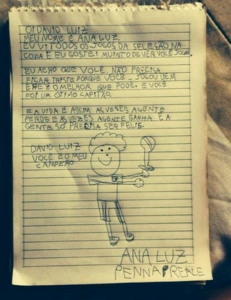 OI DAVID LUIZ
MEU NOME É ANA LUZ
EU VI TODOS OS JOGOS DA SELEÇÃO NA
COPA E EU GOSTEI MUITO DE VER VOCÊ JOGAR
EU ACHO QUE VOCÊ NÃO PRECISA
FICAR TRISTE PORQUE VOCÊ JOGOU BEM
E FEZ O MELHOR QUE PODE E VOCÊ
FOI UM OTIMO CAPITÃO
E A VIDA É ASSIM AS VEZES AGENTE
PERDE E AS VEZES AGENTE GANHA E A
GENTE SÓ PRECISA SER FELIZ
DAVID LUIZ
VOCÊ É O MEU
CAMPEÃO
ANA LUZ
PENNA